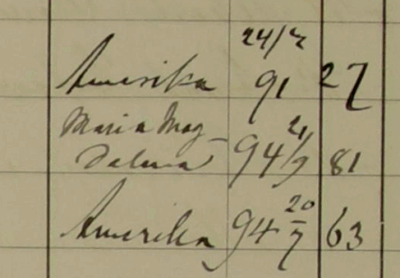 24/7
Amerika 91 27
Maria Mag-
dalena 94 21/7 81
Amerika 94 20/7 63